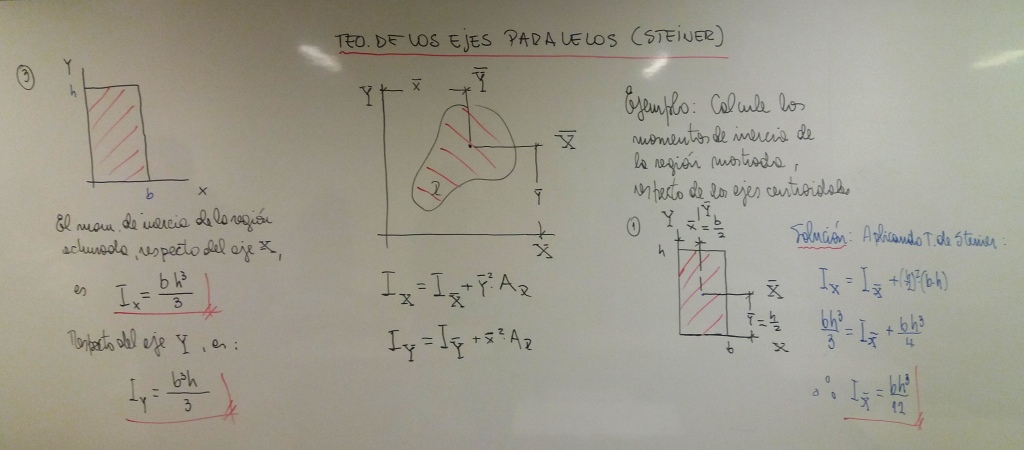 TEO. DE LOS EJES PARALELOS (STEINER)
3
Y
h
b
x
El mom. de inercia de la región
achurada, respecto del eje X,
es
I_x = bh³/3
Respecto del eje Y, es:
I_Y = b³h/3
Y
x̄
Ȳ
X̄
ȳ
R
X
I_X = I_X̄ + ȳ²·A_R
I_Y = I_Ȳ + x̄²·A_R
Ejemplo: Calcule los
momentos de inercia de
la región mostrada,
respecto de los ejes centroidales
1
Y
Ȳ
x̄ = b/2
h
X̄
ȳ = h/2
b
X
Solución: Aplicando T. de Steiner:
I_X = I_X̄ + (h/2)²(b·h)
bh³/3 = I_X̄ + bh³/4
∴ I_X̄ = bh³/12